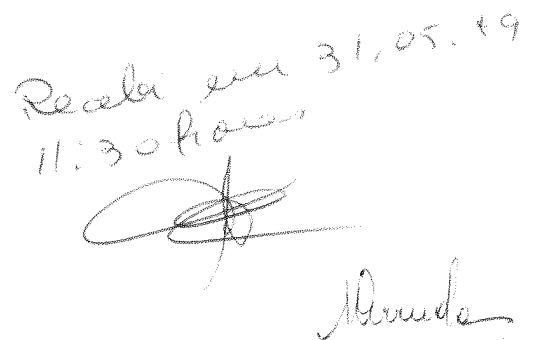 Recebi em 31.05.19
11:30 horas,
Arruda